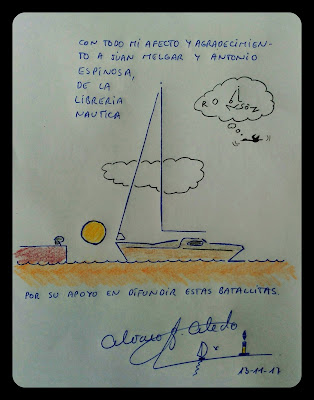 CON TODO MI AFECTO Y AGRADECIMIEN-
TO A JUAN MELGAR Y ANTONIO
ESPINOSA,
DE LA
LIBRERIA
NAUTICA
POR SU APOYO EN DIFUNDIR ESTAS BATALLITAS.
13-11-17